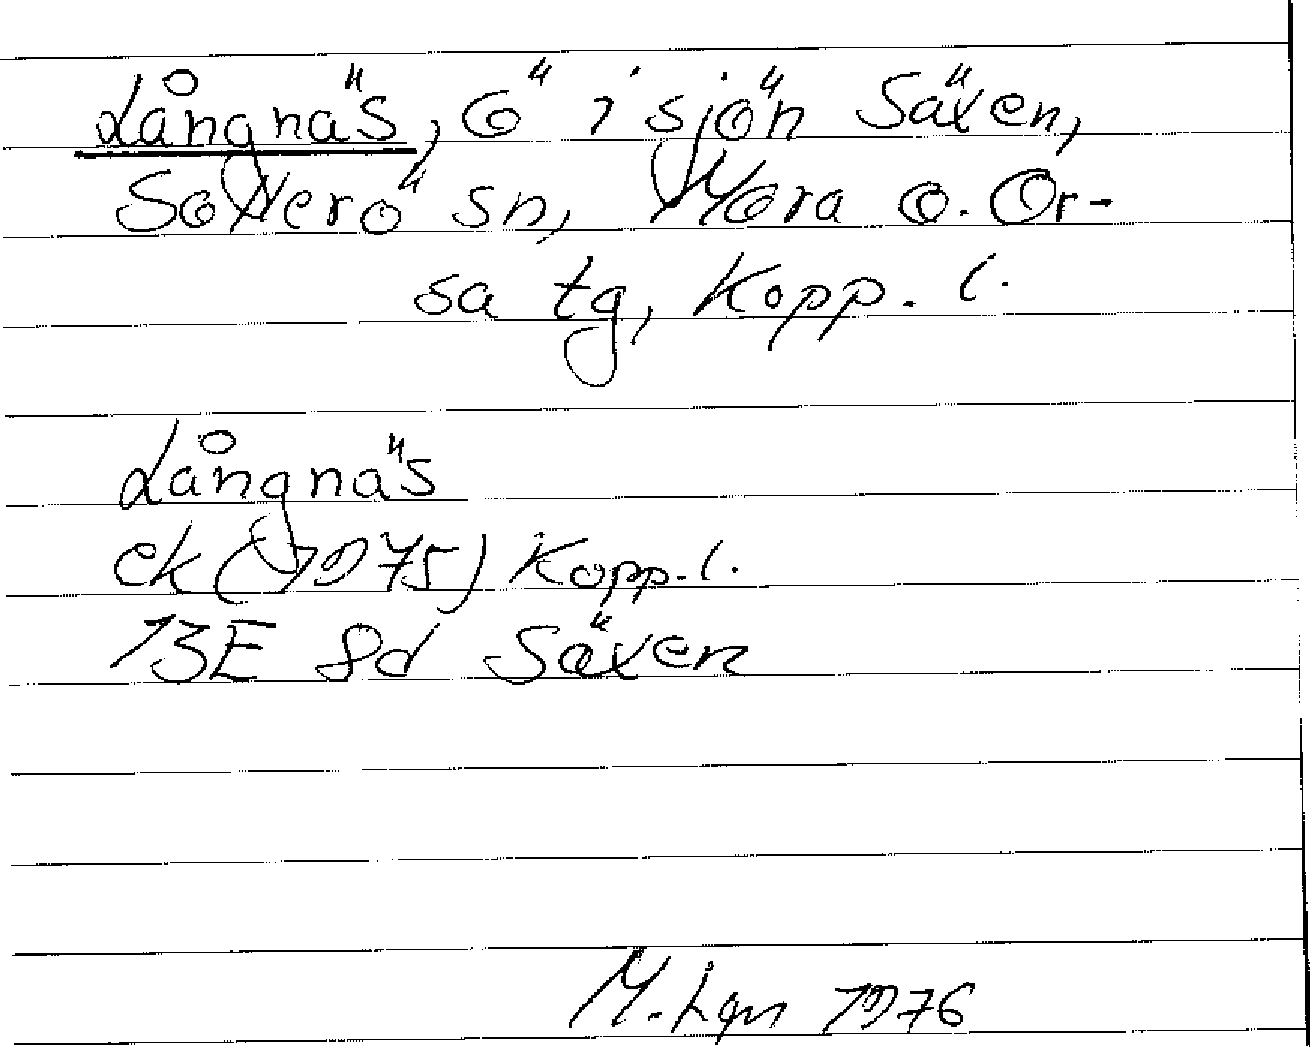 Långnäs, ö i sjön Säxen,
Sollerö sn, Mora o. Or-
sa tg, Kopp. l.
Långnäs
ek (1975) Kopp. l.
13E 8d Säxen
M. Lgn 1976